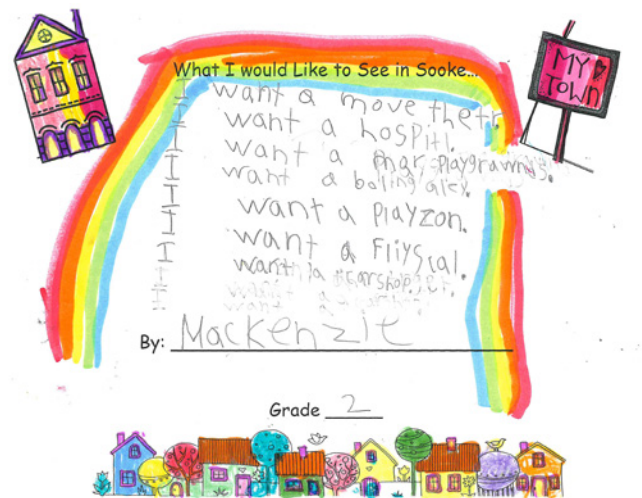 What I would Like to See in Sooke...
MY
TOWN
I want a move thetr.
I want a hospitl.
I want a mor playgrawnds.
I want a boling aley.
I want a playzon.
I want a Fliyscal.
I want a
want a
By: Mackenzie
Grade 2